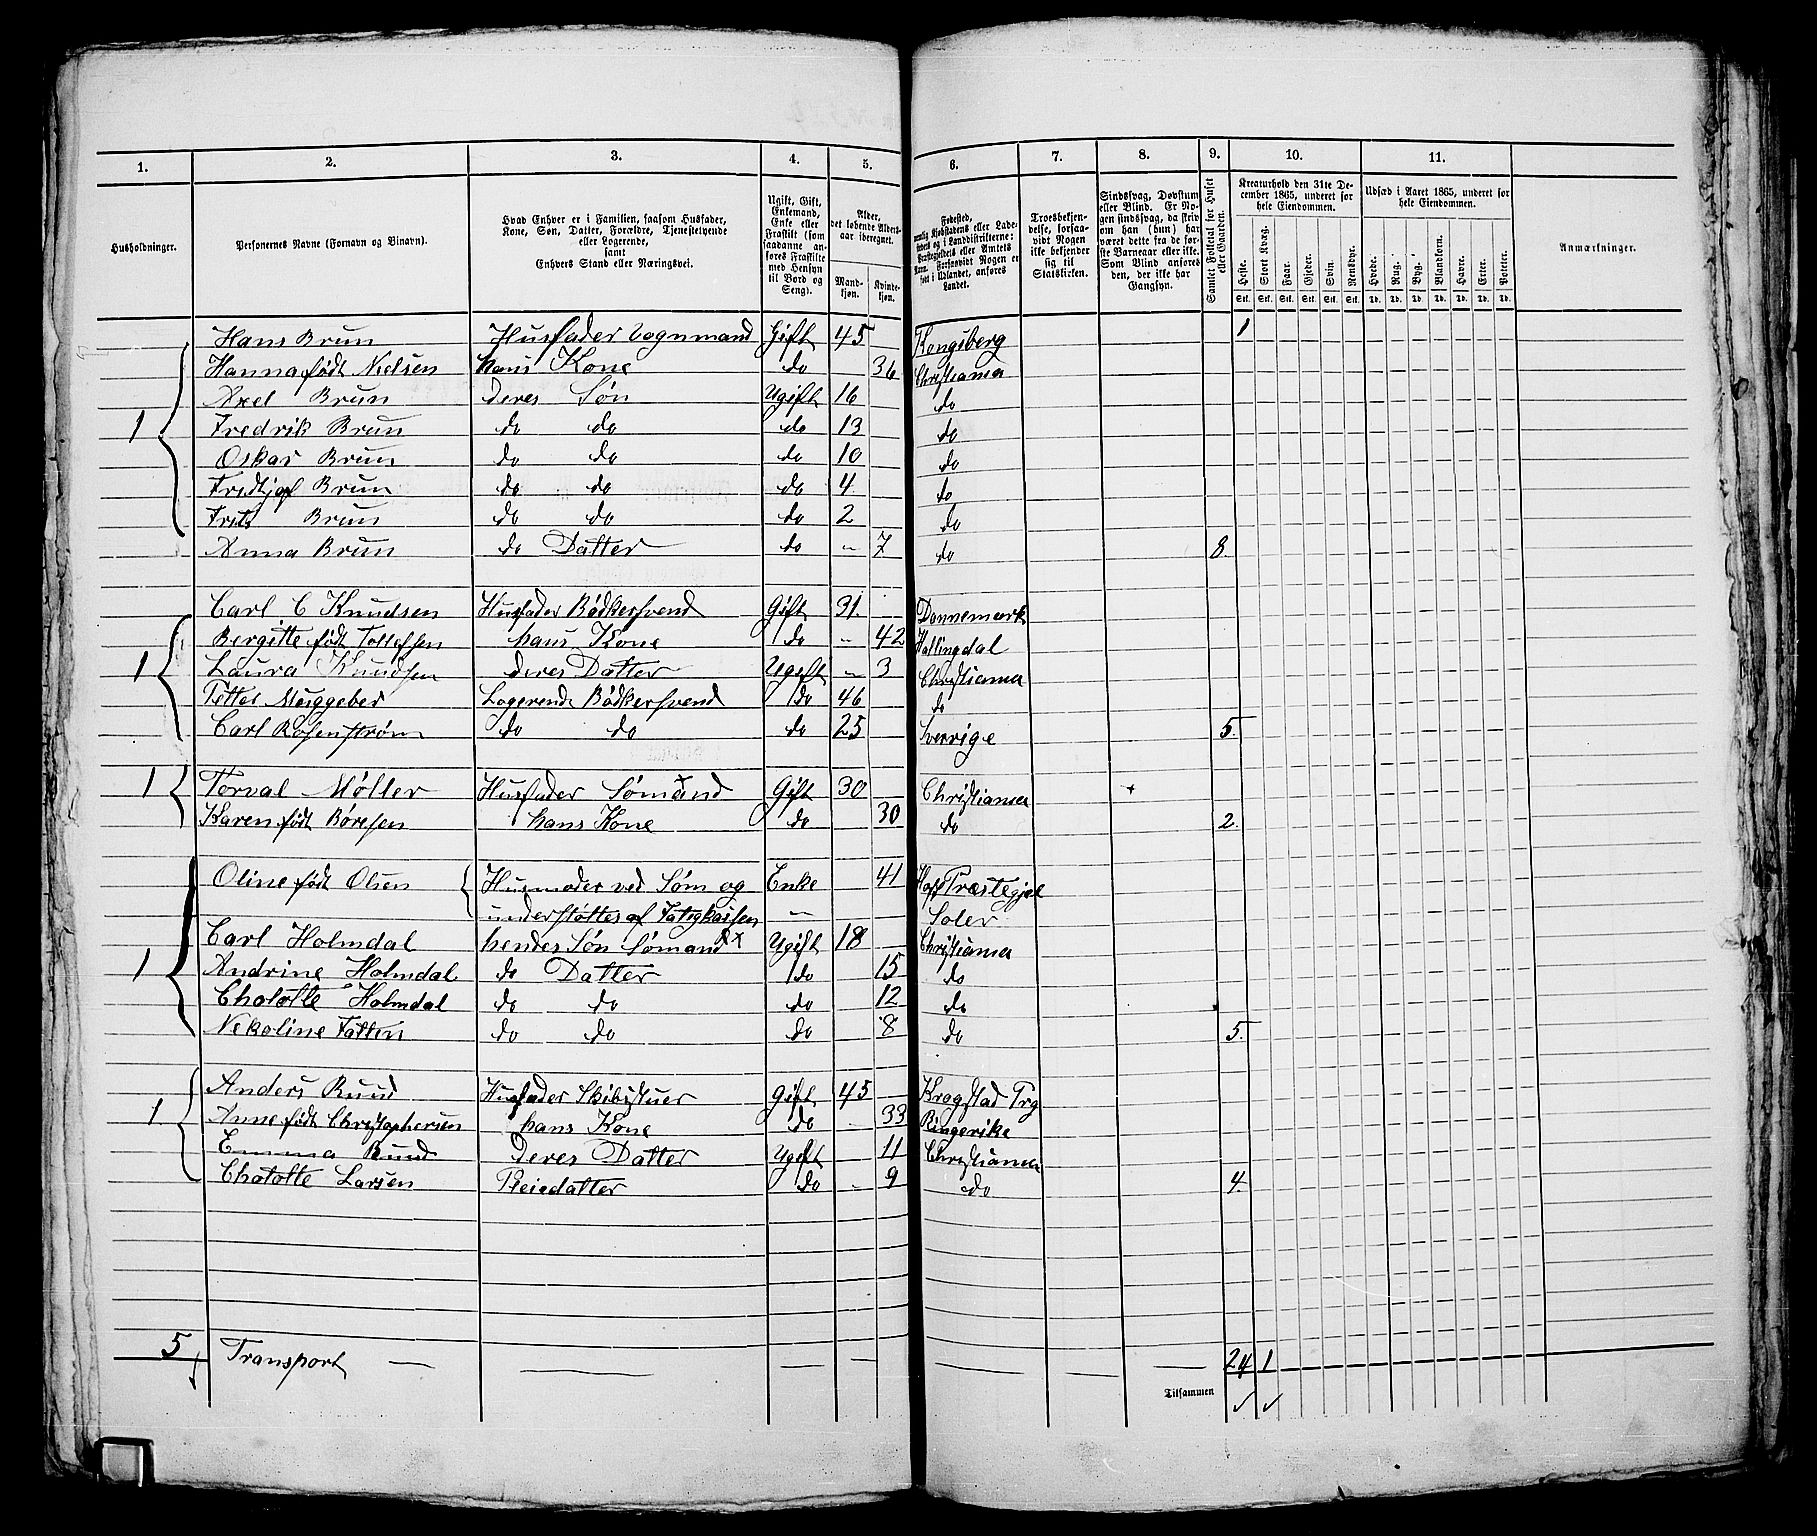 1. 2. 3. 4. 5. 6. 7. 8. 9. 10. 11.
Husholdninger.
Personernes Navne (Fornavn og Binavn).
Hvad Enhver er i Familien, saasom Husfader,
Kone, Søn, Datter, Forældre, Tjenestetyende
eller Logerende,
samt
Enhvers Stand eller Næringsvei.
Ugift, Gift,
Enkemand,
Enke eller
Fraskilt (som
saadanne an-
føres Fraskilte
med Hensyn
til Bord og
Seng).
Alder,
det løbende Alders-
aar iberegnet.
Mand-
kjøn.
Kvinde-
kjøn.
Fødested,
Kjøbstadens eller Lade-
stedets og i Landdistrikterne:
Præstegjeldets eller Amtets
Navn. Forsaavidt Nogen er
født i Udlandet, anføres
Landet.
Troesbekjen-
delse, forsaa-
vidt Nogen
ikke bekjender
sig til
Statskirken.
Sindssvag, Døvstum
eller Blind. Er No-
gen sindssvag, da skriv
om han (hun) har
været dette fra de før-
ste Barneaar eller ikke.
Som Blind anføres
den, der ikke har
Gangsyn.
Samlet Folketal for Huset
eller Gaarden.
Kreaturhold den 31te De-
cember 1865, underet før
hele Eiendommen.
Heste. Stort Kvæg. Faar. Gjeder. Svin. Rensdyr.
Stk. Stk. Stk. Stk. Stk. Stk.
Udsæd i Aaret 1865, underet før
hele Eiendommen.
Hvede. Rug. Byg. Blandkorn. Havre. Erter. Poteter.
Td. Td. Td. Td. Td. Td. Td.
Anmærkninger.
Hans Brun Husfader Vognmand Gift 45 Kongsberg 1
Hanna født Nielsen hans Kone do 36 Christiania
Axel Brun deres Søn Ugift 16 do
1 Fredrik Brun do do do 13 do
Oskar Brun do do do 10 do
Fridtjof Brun do do do 4 do
Fritz Brun do do do 2 do
Anna Brun do Datter do - 7 do 8.
Carl C Knudsen Husfader Bødkersvend Gift 31. Dannemark
Bergitte født Tollefsen hans Kone do - 42 Hallingdal
1 Laura Knudsen deres Datter Ugift - 3 Christiania
Petter Muggeber Logerende Bødkersvend do 46 do
Carl Rosenstrøm do do do 25 Sverrige 5.
1 Torval Møller Husfader Sømand Gift 30 Christiania +
Karen født Børesen hans Kone do 30 do 2.
Oline født Olsen Husmoder ved Søm og Enke 41 Hoff Præstegjel
understøttes af Fatigkassen - Soler
Carl Holmdal hendes Søn Sømand x Ugift 18 Christiania
1 Andrine Holmdal do Datter do 15 do
Chatotte Holmdal do do do 12 do
Nekoline do do do 8 do 5.
Anders Ruud Husfader Skibistuer Gift 45 Krogstad Prg
1. Anne født Christophersen hans Kone do 33 Ringerike
Emma Ruud Deres Datter Ugift 11 Christiania
Chatotte Larsen Pleiedatter do - 9 do 4.
5 Transport — — — — — — 24 1
Tilsammen